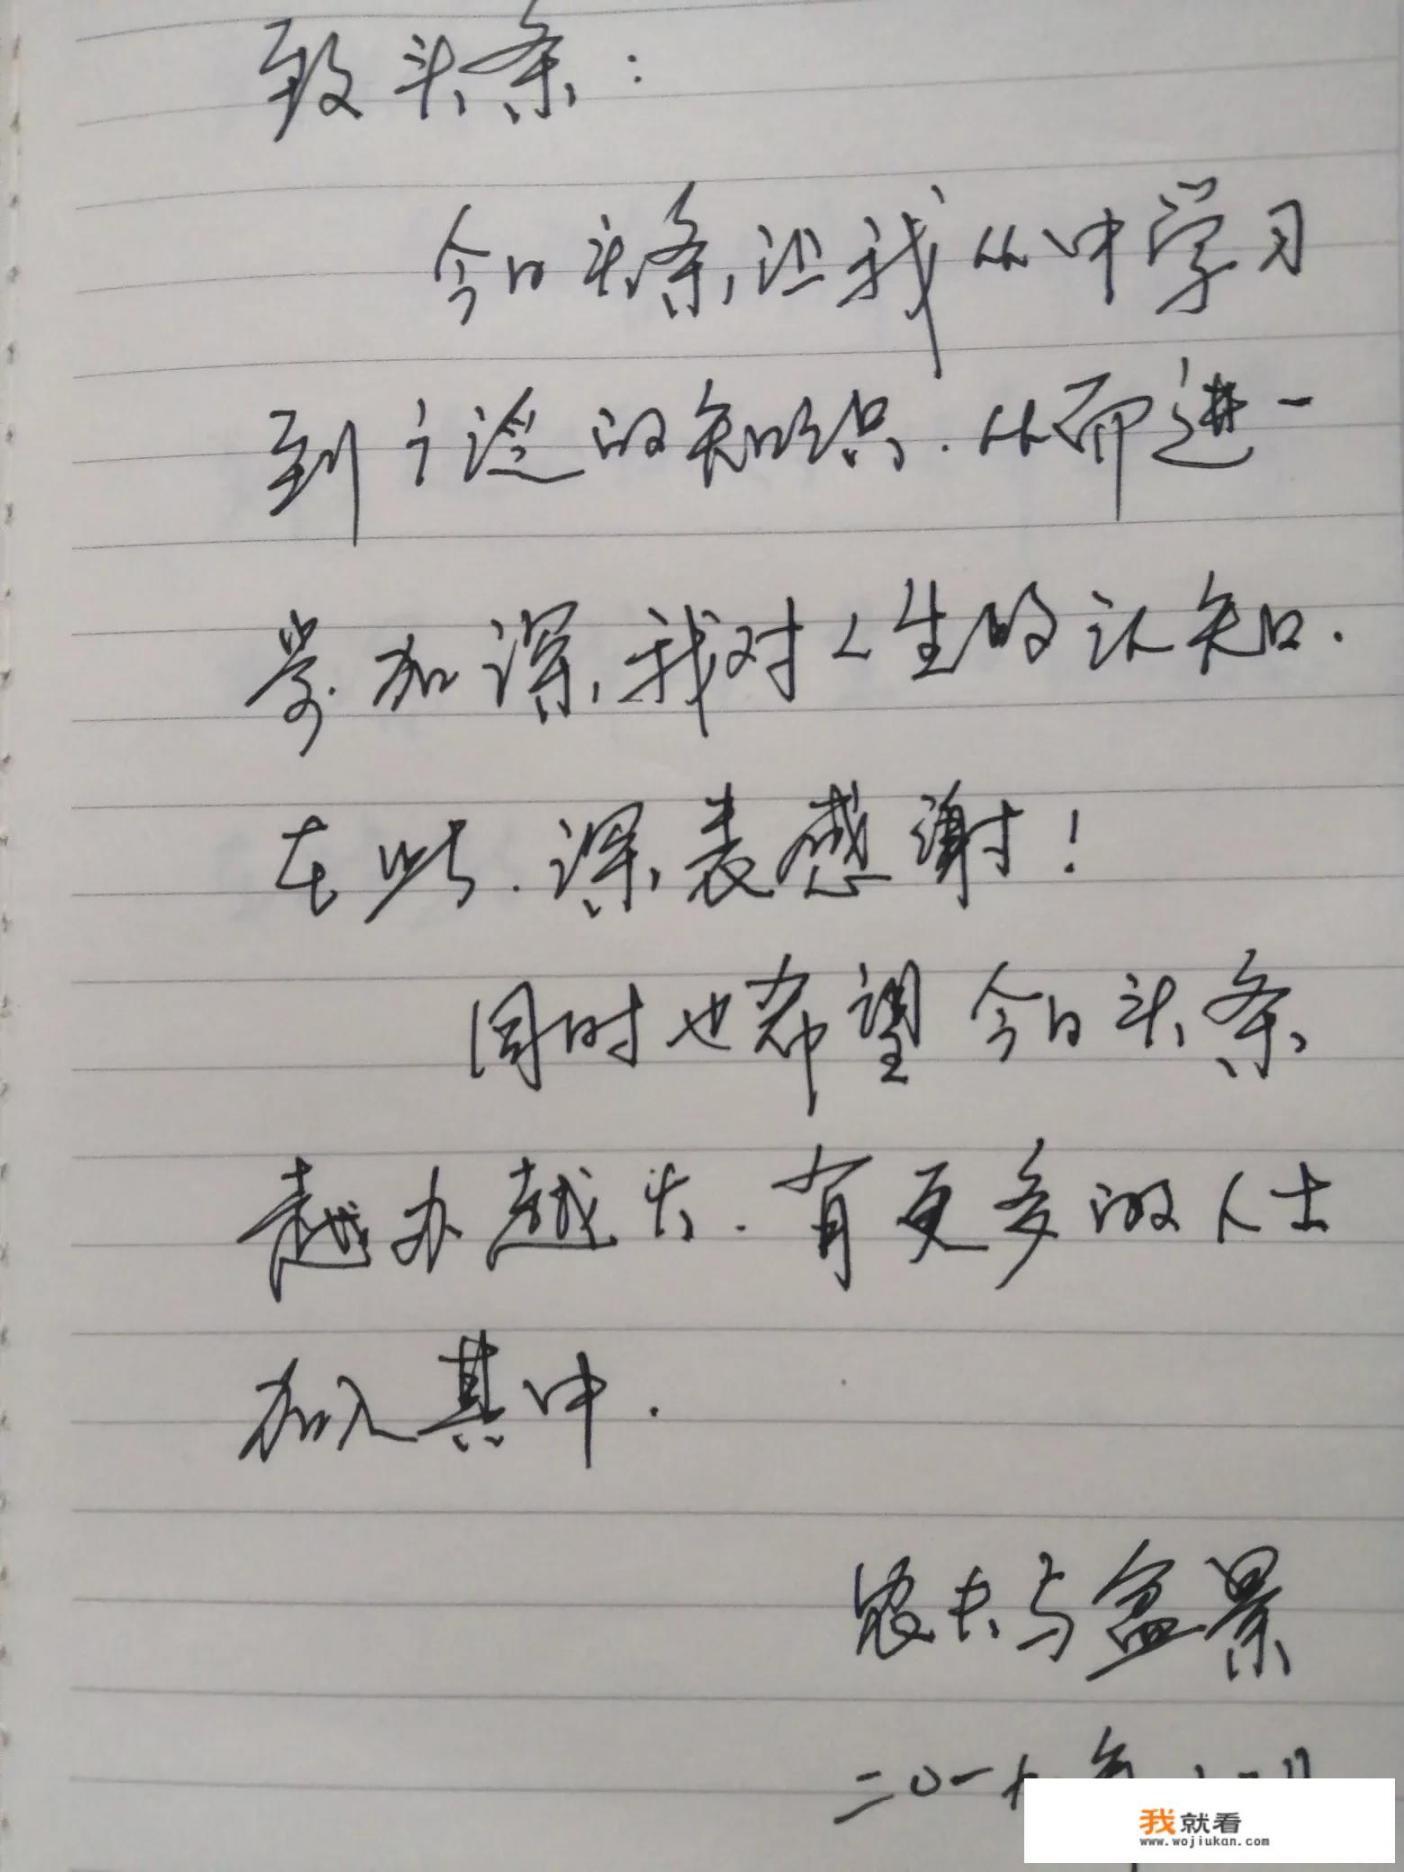 致头条：
今日头条，让我从中学习
到广泛的知识．从而进一
步加深，我对人生的认知．
在此．深表感谢！
同时也希望今日头条
越办越大．有更多的人士
加入其中．
农夫与盆景
二〇一九年
我就看
www.wojiukan.com